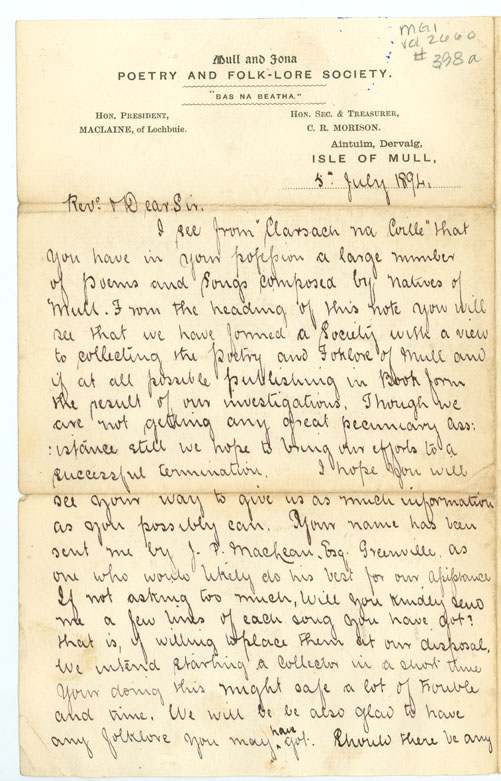 MG1
vol 2660
# 338a
Mull and Iona
POETRY AND FOLK-LORE SOCIETY.
"BAS NA BEATHA."
HON. PRESIDENT,
MACLAINE, of Lochbuie.
HON. SEC. & TREASURER,
C. R. MORISON.
Aintuim, Dervaig,
ISLE OF MULL,
5th July 1894.
Revd. & Dear Sir.
I see from "Clarsach na Coille" that
you have in your possession a large number
of Poems and Songs composed by natives of
Mull. From the heading of this note you will
see that we have formed a Society with a view
to collecting the Poetry and Folklore of Mull and
if at all possible publishing in Book form
the result of our investigations. Though we
are not getting any great pecuniary ass:
:istance still we hope to bring our efforts to a
successful termination. I hope you will
see your way to give us as much information
as you possibly can. Your name has been
sent me by J. P. MacLean, Esq. Greenville, as
one who would likely do his best for our assistance
If not asking too much, Will you kindly send
me a few lines of each song you have got?
that is, if willing to place them at our disposal,
We intend starting a collector in a short time
Your doing this might safe a lot of trouble
and time. We will be be also glad to have
any folklore you may have got. Should there be any